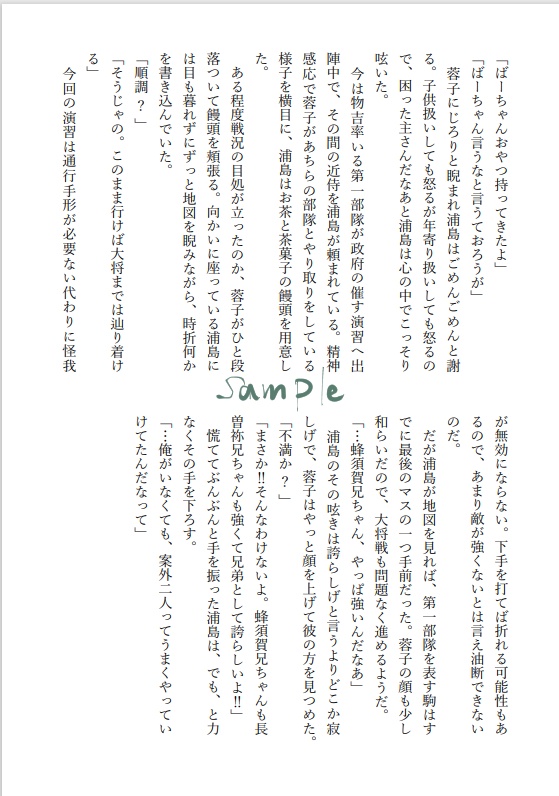 「ばーちゃんおやつ持ってきたよ」
「ばーちゃん言うなと言うておろうが」
　蓉子にじろりと睨まれ浦島はごめんごめんと謝
る。子供扱いしても怒るが年寄り扱いしても怒るの
で、困った主さんだなあと浦島は心の中でこっそり
呟いた。
　今は物吉率いる第一部隊が政府の催す演習へ出
陣中で、その間の近侍を浦島が頼まれている。精神
感応で蓉子があちらの部隊とやり取りをしている
様子を横目に、浦島はお茶と茶菓子の饅頭を用意し
た。
　ある程度戦況の目処が立ったのか、蓉子がひと段
落ついて饅頭を頬張る。向かいに座っている浦島に
は目も暮れずにずっと地図を睨みながら、時折何か
を書き込んでいた。
「順調？」
「そうじゃの。このまま行けば大将までは辿り着け
る」
　今回の演習は通行手形が必要ない代わりに怪我
が無効にならない。下手を打てば折れる可能性もあ
るので、あまり敵が強くないとは言え油断できない
のだ。
　だが浦島が地図を見れば、第一部隊を表す駒はす
でに最後のマスの一つ手前だった。蓉子の顔も少し
和らいだので、大将戦も問題なく進めるようだ。
「…蜂須賀兄ちゃん、やっぱ強いんだなあ」
　浦島のその呟きは誇らしげと言うよりどこか寂
しげで、蓉子はやっと顔を上げて彼の方を見つめた。
「不満か？」
「まさか‼そんなわけないよ。蜂須賀兄ちゃんも長
曽祢兄ちゃんも強くて兄弟として誇らしいよ‼」
　慌ててぶんぶんと手を振った浦島は、でも、と力
なくその手を下ろす。
「…俺がいなくても、案外二人ってうまくやってい
けてたんだなって」
Sample